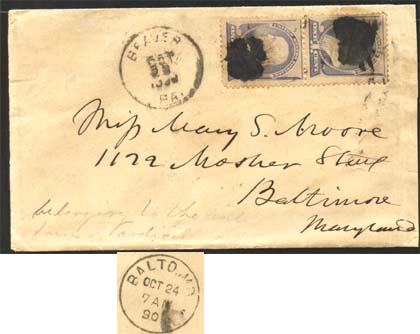 BEAVER
PA.
Miss Mary S. Moore
1122 Mosher Street
Baltimore
Maryland
belonging to the
BALTO. MD
OCT 24
7 AM
90